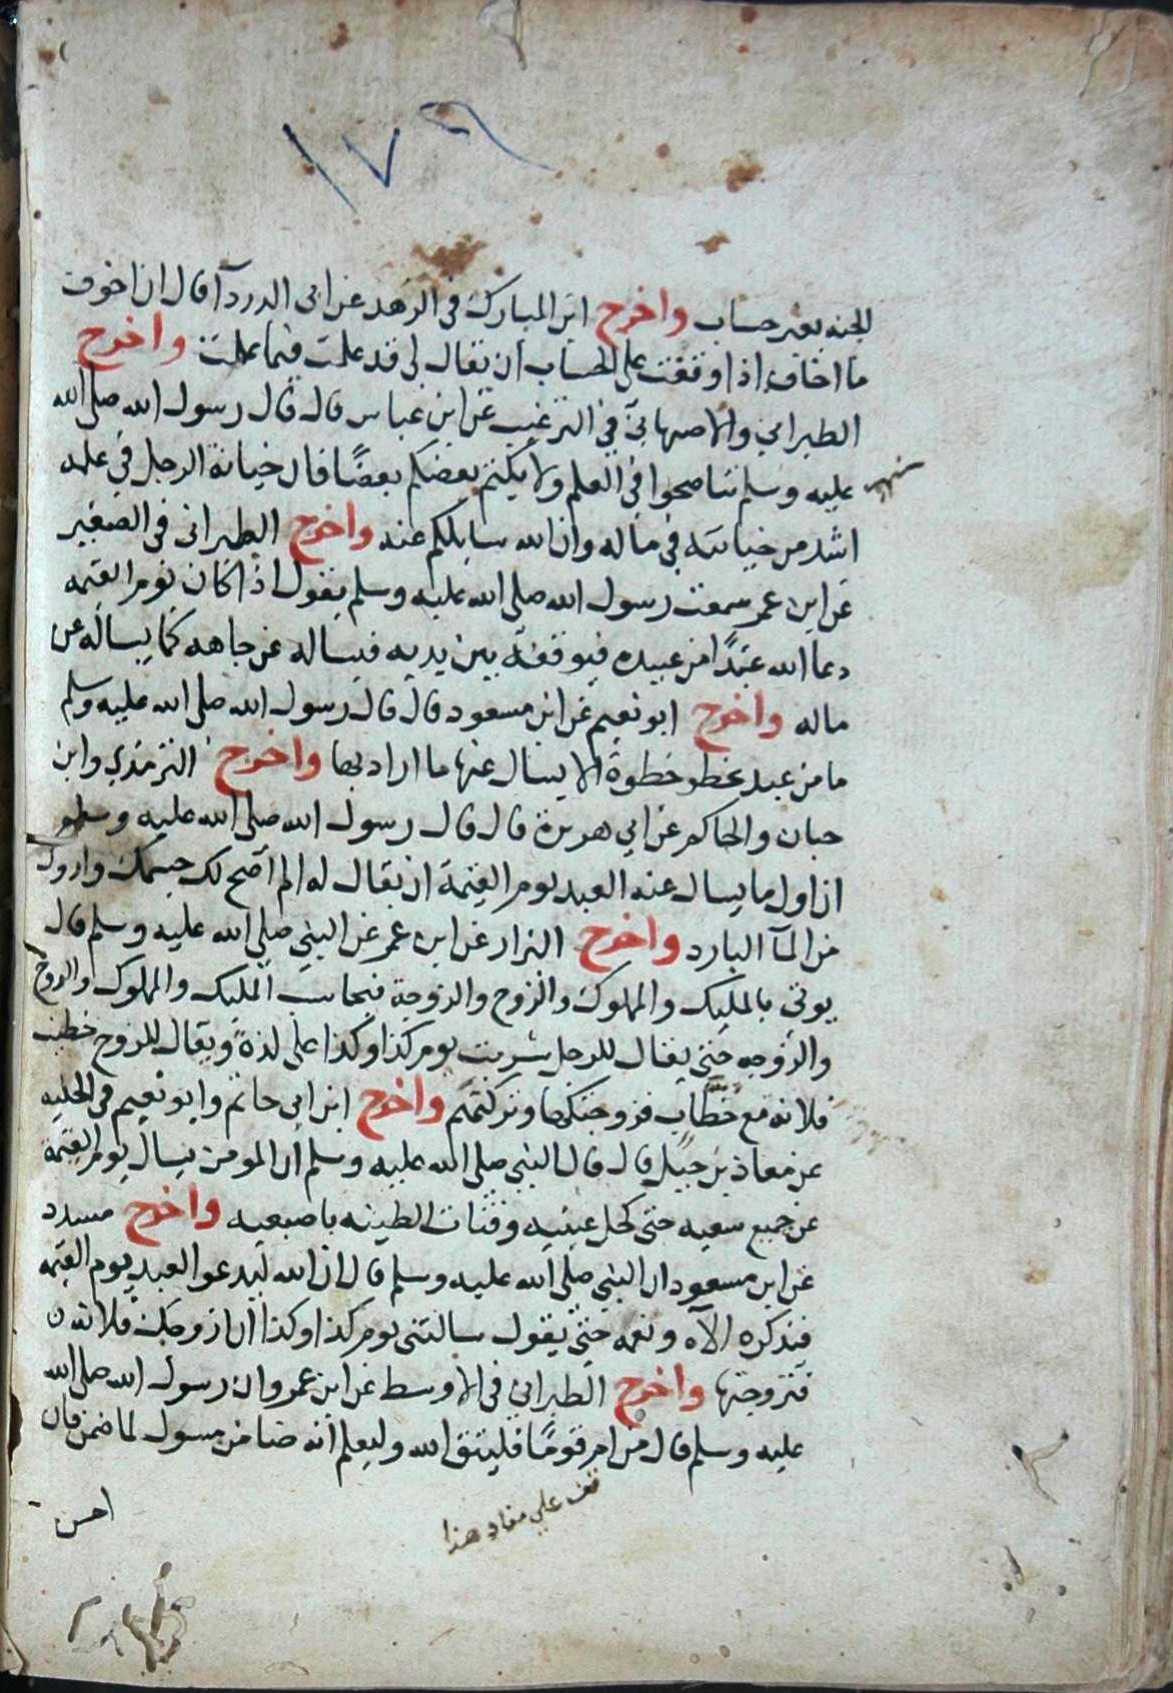 ١٧٩
الجنه بغير حساب واخرج ابن المبارك في الزهد عن ابي الدردآ قال ان اخوف
ما اخاف اذا وقفت على الحساب ان يقال لي قد علمت فما عملت واخرج
الطبراني والاصبهاني في الترغيب عن ابن عباس قال قال رسول الله صلى الله
عليه وسلم تناصحوا في العلم ولا يكتم بعضكم بعضًا فان خيانة الرجل في علمه
اشد من خيانته في ماله وان الله سايلكم عنه واخرج الطبراني في الصغير
عن ابن عمر سمعت رسول الله صلى الله عليه وسلم يقول اذا كان يوم القيمه
دعا الله عبدًا من عبيده فيوقفه بين يديه فيساله عن جاهه كما يساله عن
ماله واخرج ابو نعيم عن ابن مسعود قال قال رسول الله صلى الله عليه وسلم
ما من عبد يخطو خطوة الا يسال عنها ما اراد بها واخرج الترمذي وابن
حبان والحاكم عن ابي هريرة قال قال رسول الله صلى الله عليه وسلم
ان اول ما يسال عنه العبد يوم القيمة ان يقال له الم اصح لك جسمك واروك
من المآ البارد واخرج البزار عن ابن عمر عن النبي صلى الله عليه وسلم قال
يوتى بالمليك والمملوك والزوج والزوجة فيحاسب المليك والمملوك والزوج
والزوجه حتى يقال للرجل شربت يوم كذا وكذا على لذة ويقال للزوج خطبت
فلانه مع خطاب فزوجتكها وتركتهم واخرج ابن ابي حاتم وابو نعيم في الحليه
عن معاذ بن جبل قال قال النبي صلى الله عليه وسلم ان المومن يسال يوم القيمة
عن جميع سعيه حتى كحل عينيه وفتات الطينه باصبعيه واخرج مسدد
عن ابن مسعود ان النبي صلى الله عليه وسلم قال ان الله ليدعو العبد يوم القيمه
فيذكره الآه ونعمه حتى يقول سالتني يوم كذا وكذا ان ازوجك فلانة
فتزوجتها واخرج الطبراني في الاوسط عن ابن عمر وان رسول الله صلى الله
عليه وسلم قال من ام قومًا فليتق الله وليعلم انه ضامن مسول لما ضمن فان
قف على مفاد هذا
احسن